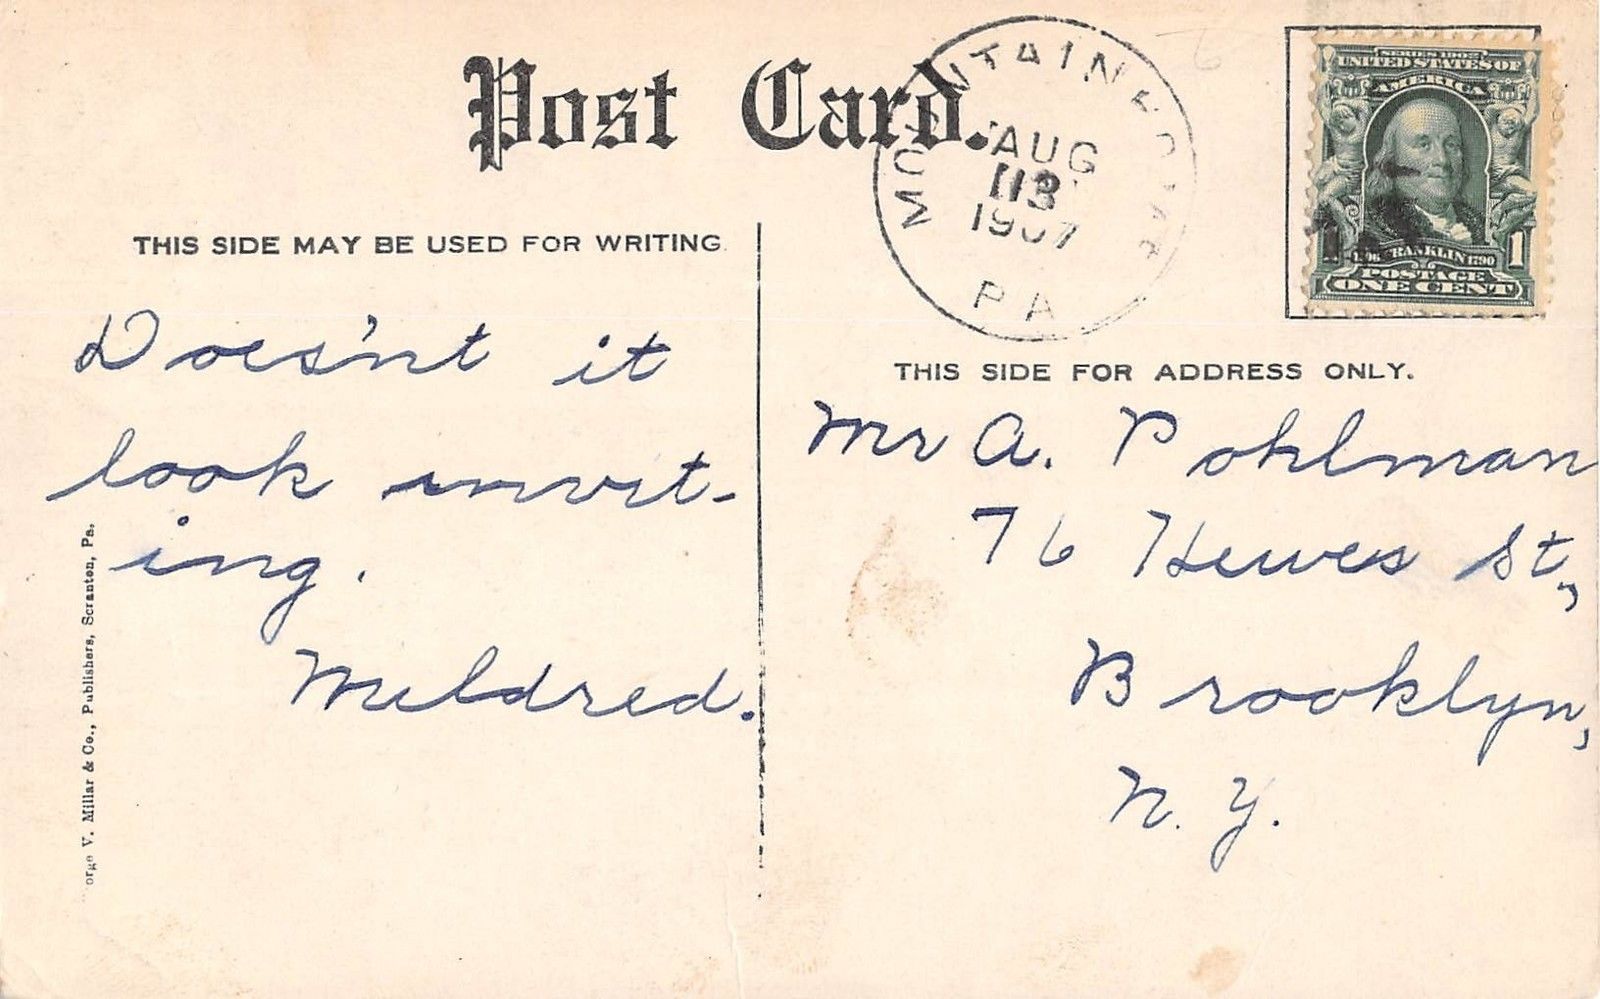 Post Card.
MOUNTAINHOME
AUG
13
1907
PA
SERIES 1902
UNITED STATES OF
AMERICA
1706 FRANKLIN 1790
1 1
POSTAGE
ONE CENT
THIS SIDE MAY BE USED FOR WRITING.
Does'nt it
look invit-
ing.
Mildred.
THIS SIDE FOR ADDRESS ONLY.
Mr A. Pohlman
76 Hewes St,
Brooklyn,
N. Y.
orge V. Millar & Co., Publishers, Scranton, Pa.